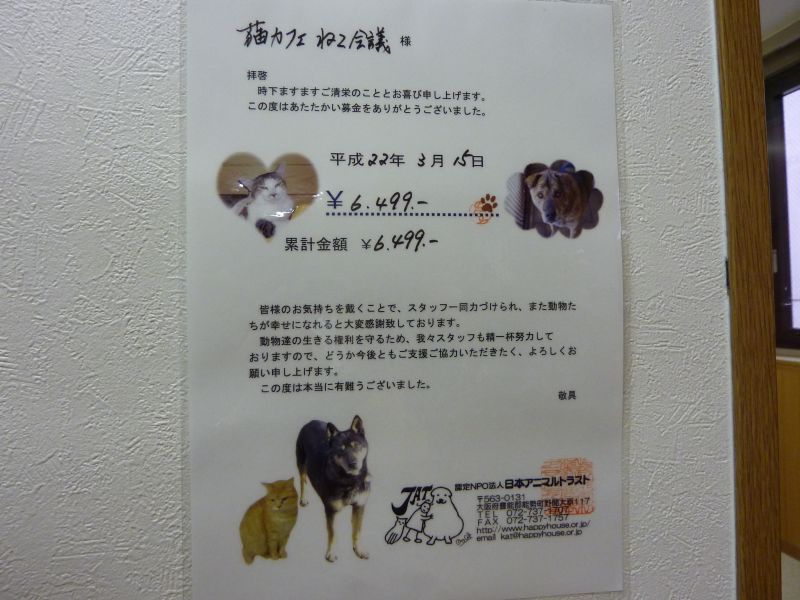 猫カフェ ねこ会議 様
拝啓
時下ますますご清栄のこととお喜び申し上げます。
この度はあたたかい募金をありがとうございました。
平成22年 3月 15日
¥ 6.499.-
累計金額 ¥6.499.-
皆様のお気持ちを戴くことで、スタッフ一同力づけられ、また動物た
ちが幸せになれると大変感謝致しております。
動物達の生きる権利を守るため、我々スタッフも精一杯努力して
おりますので、どうか今後ともご支援ご協力いただきたく、よろしくお
願い申し上げます。
この度は本当に有難うございました。
敬具
JAT
認定NPO法人 日本アニマルトラスト
〒563-0131
大阪府豊能郡能勢町野間大原117
TEL 072-737-1707
FAX 072-737-1757
http://www.happyhouse.or.jp/
email kat@happyhouse.or.jp